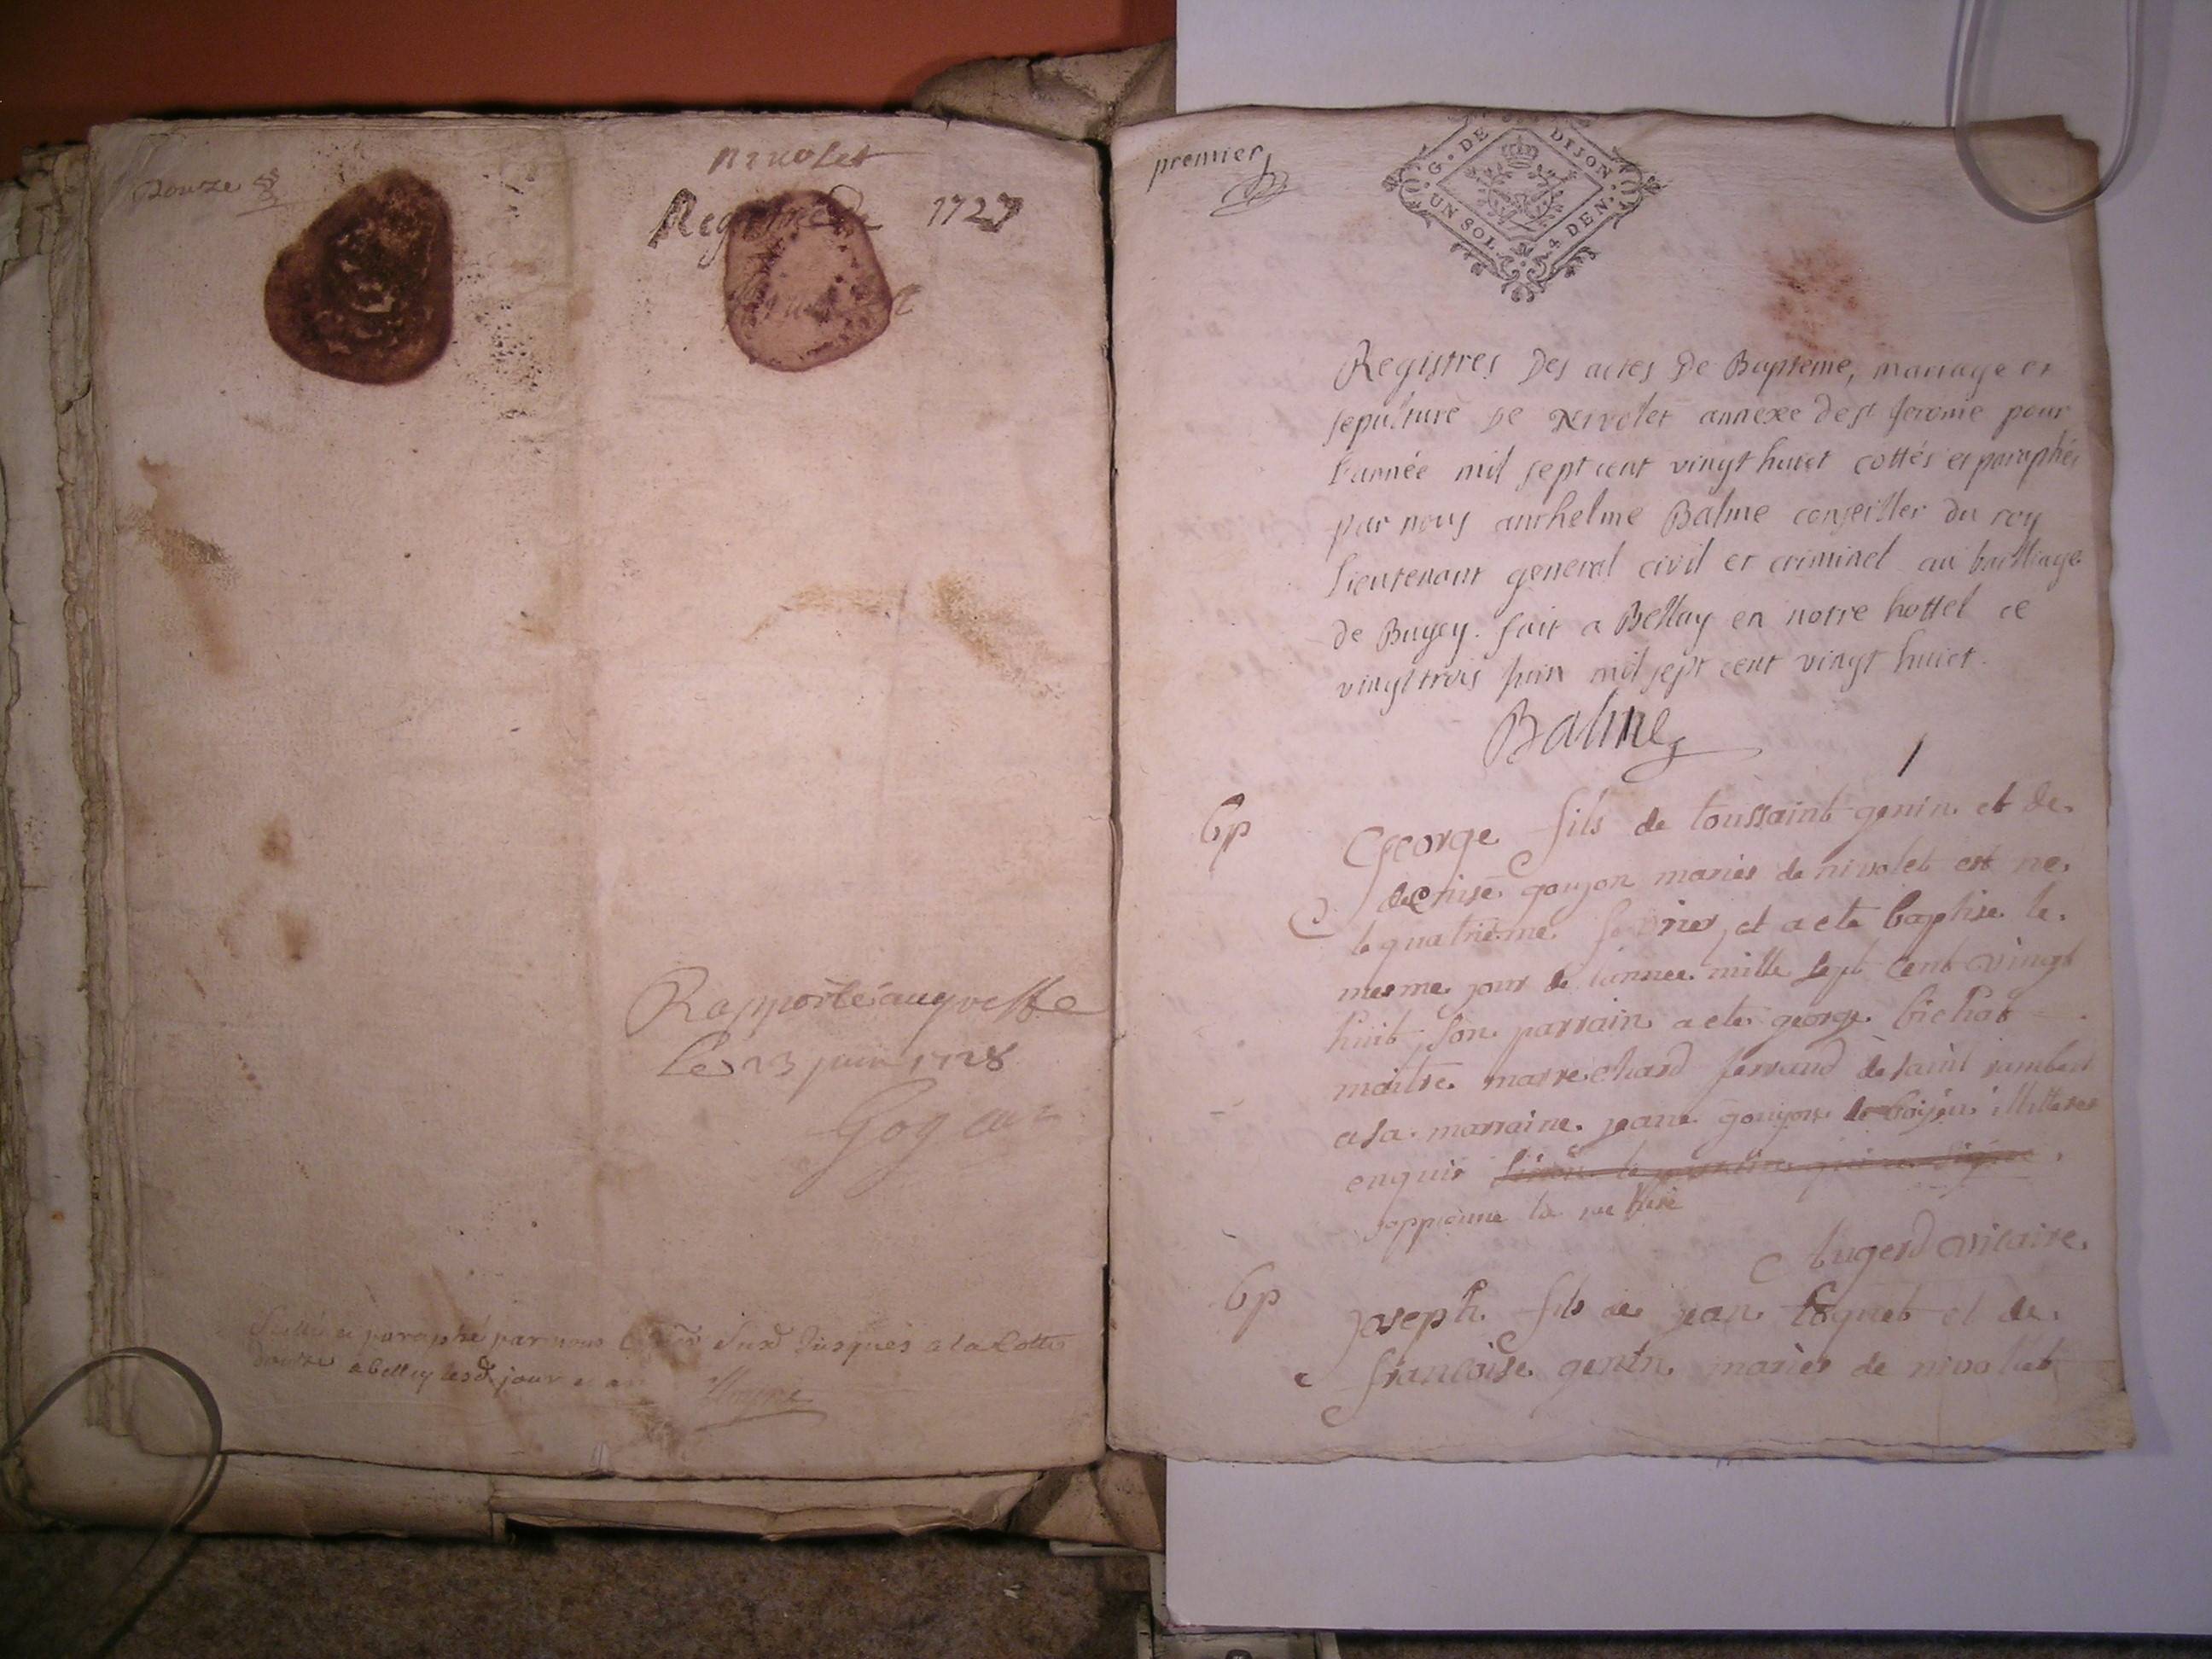 Douze
Nivolet
Registre de 1727
Rapporté au greffe
le 23 juin 1728
paraphé par nous jusques a la Cotte
douze a belley lesd. jour et an
premier
G. DE DIJON
UN SOL 4 DEN.
Registres Des actes De Bapteme, mariage et
sepulture De Nivolet annexe de st Jerome pour
l'année mil sept cent vingt huict cottés et paraphés
par nous anthelme Balme conseiller du roy
lieutenant general civil et criminel au bailliage
de Bugey. fait a Bellay en notre hottel ce
vingt trois juin mil sept cent vingt huict.
Balme
1
bp
George fils de toussaint genin et de
denise goujon mariés de nivolet est né
le quatrieme fevrier et a eté baptise le
mesme jour de lannee mille sept cent vingt
huit son parrain a eté george bichat
maitre marrechard ferrand de saint rambert
et sa marraine jeane goujon illitterés
enquis
approuve la
vicaire
bp
Joseph fils de jean et de
francoise genin mariés de nivollet